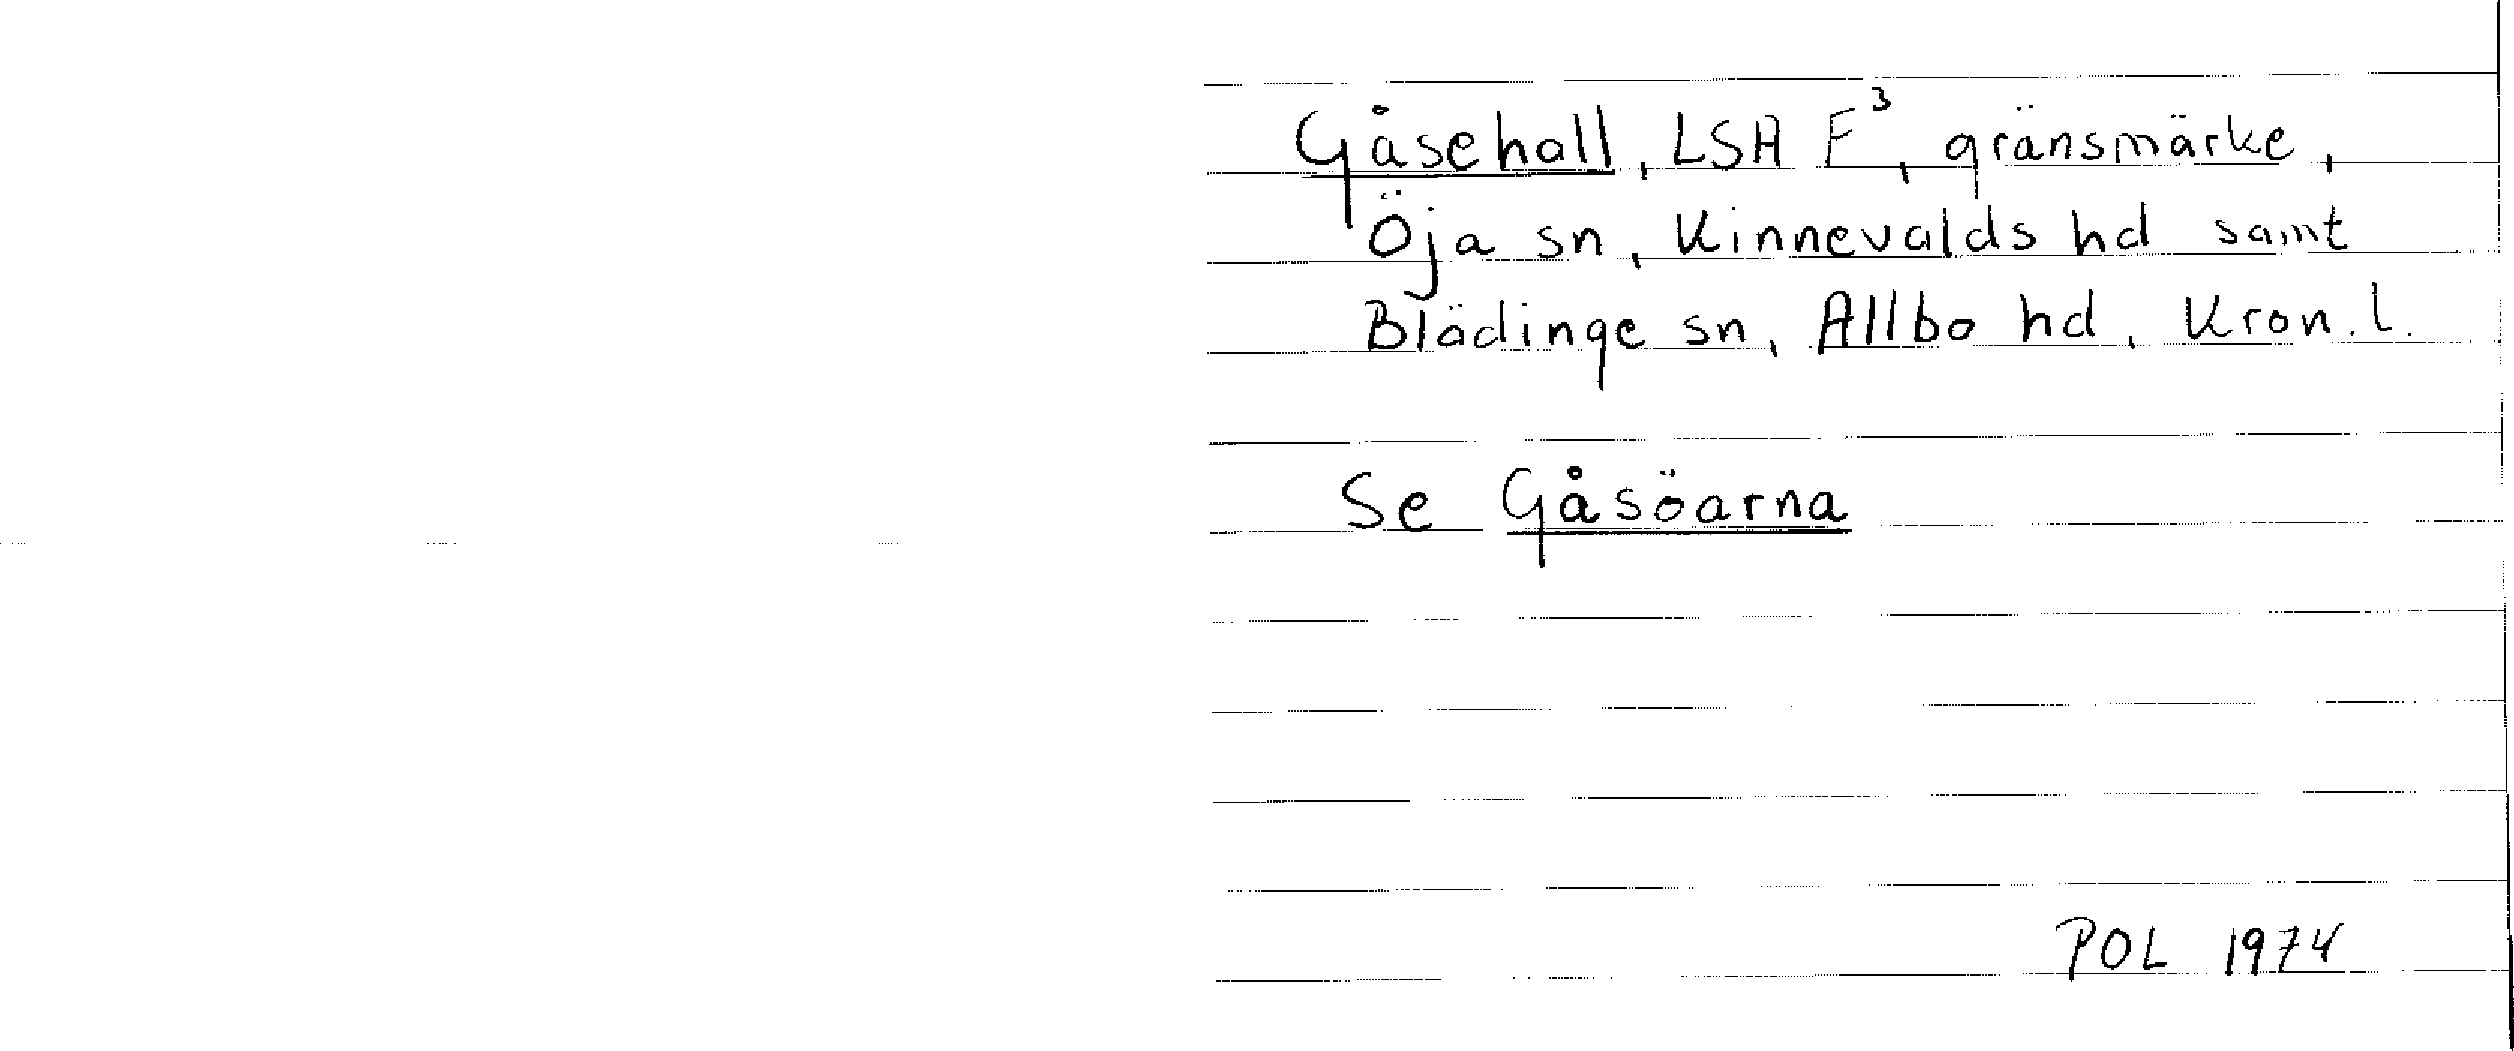 Gåsehall, LSA F³, gränsmärke,
Öja sn, Kinnevalds hd samt
Blädinge sn, Allbo hd, Kron. l.
Se Gåsöarna
POL 1974